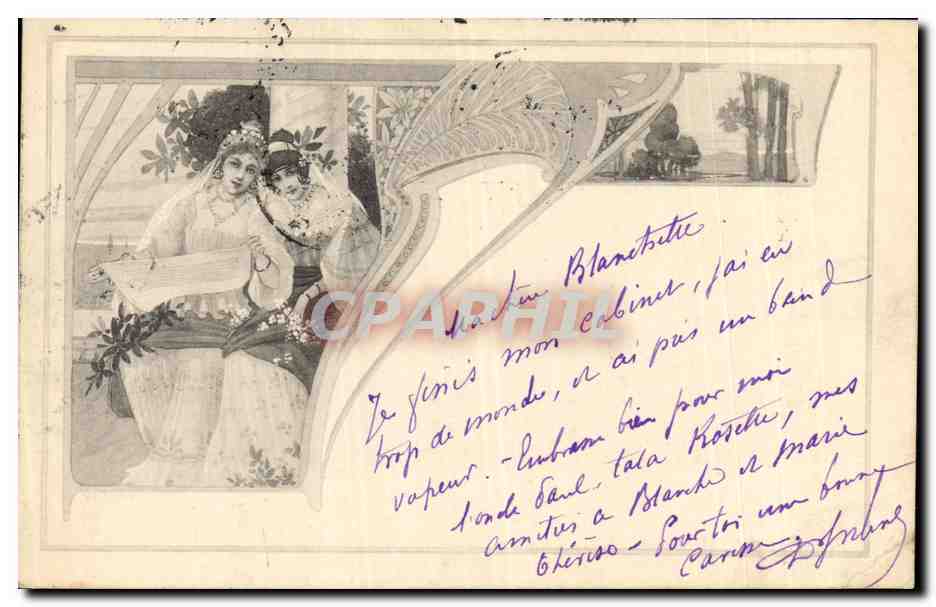 Ma chère Blanchette
Je finis mon cabinet, j'ai eu
trop de monde, et ai pris un bain de
vapeur. - Embrasse bien pour moi
l'oncle Paul, tata Rosette, mes
amitiés à Blanche et Marie
Thérèse - Pour toi une bonne
Caresse.
CPAPHIL